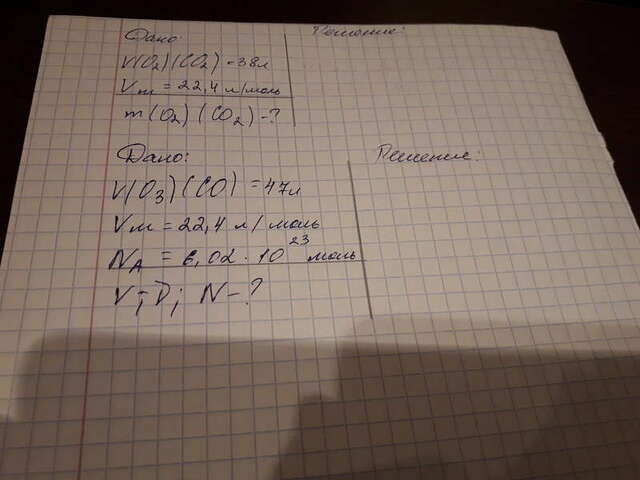 Дано:
V(O₂)(CO₂) = 38л
Vm = 22,4 л/моль
m(O₂)(CO₂) - ?
Решение:
Дано:
V(O₃)(CO) = 47л
Vм = 22,4 л/моль
N_A = 6,02 · 10²³ моль
N - ?
Решение: